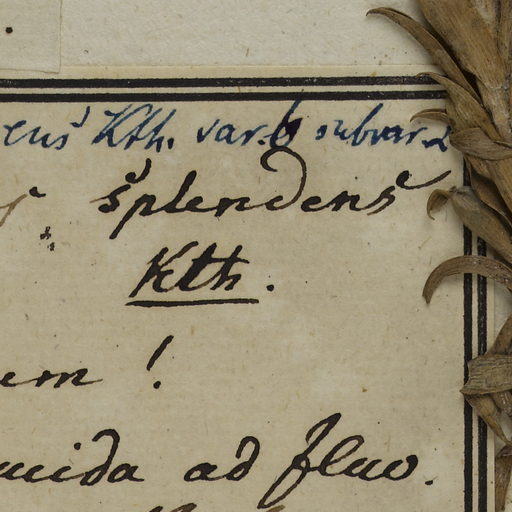 ens Kth. var. b subvar. α
splendens
Kth.
em !
mida ad fluv.